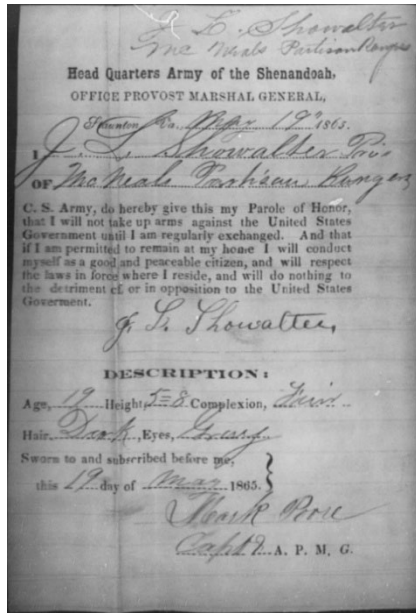 J. L. Showalter
Mc Neals Partison Rangers
Head Quarters Army of the Shenandoah,
OFFICE PROVOST MARSHAL GENERAL,
Staunton Va. May 19" 1865.
I J L Showalter Priv
OF McNeals Partisan Rangers
C. S. Army, do hereby give this my Parole of Honor,
that I will not take up arms against the United States
Government until I am regularly exchanged. And that
if I am permitted to remain at my home I will conduct
myself as a good and peaceable citizen, and will respect
the laws in force where I reside, and will do nothing to
the detriment of or in opposition to the United States
Goverment.
J. L. Showalter,
DESCRIPTION:
Age, 19 Height, 5=8 Complexion, Fair
Hair Dark, Eyes, Gray
Sworn to and subscribed before me,
this 19 day of May 1865.
Mark
Capt & A. P. M. G.